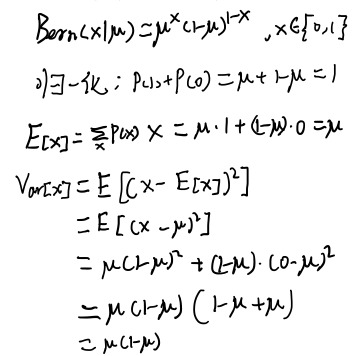 Bern(x|μ) = μ^x (1-μ)^{1-x}, x∈{0,1}
归一化: P(1)+P(0) = μ + 1-μ = 1
E[x] = Σ_x P(x) x = μ·1 + (1-μ)·0 = μ
Var[x] = E[(x - E[x])²]
= E[(x - μ)²]
= μ(1-μ)² + (1-μ)·(0-μ)²
= μ(1-μ)(1-μ+μ)
= μ(1-μ)